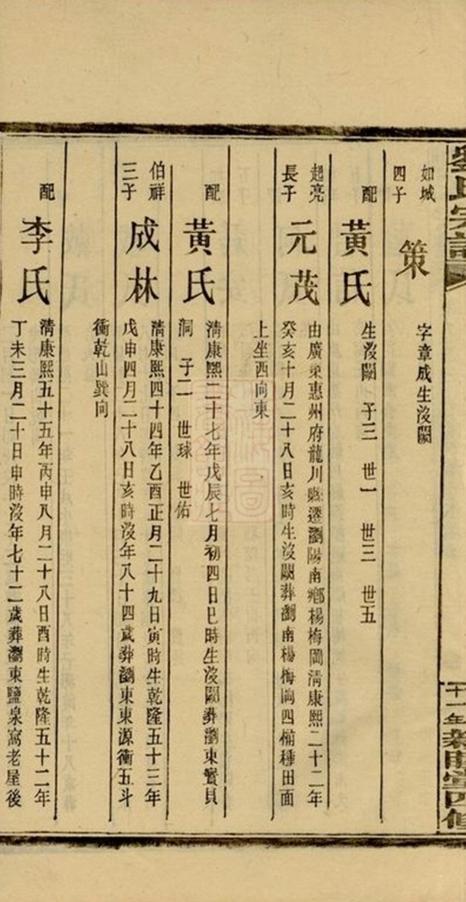 劉氏宗譜
十一年新明堂四修
如城
四子
策
字章成生沒闕
配
黃氏
生沒闕 子三 世一 世三 世五
起亮
長子
元茂
由廣東惠州府龍川縣遷瀏陽南鄉楊梅岡清康熙二十二年
癸亥十月二十八日亥時生沒闕葬瀏南楊梅岡四桶種田面
上坐西向東
配
黃氏
清康熙二十七年戊辰七月初四日巳時生沒闕葬瀏東寳貝
洞 子二 世球 世佑
伯祥
三子
成林
清康熙四十四年乙酉正月二十九日寅時生乾隆五十三年
戊申四月二十八日亥時沒年八十四歲葬瀏東東源衝五斗
衝乾山巽向
配
李氏
清康熙五十五年丙申八月二十八日酉時生乾隆五十二年
丁未三月二十日申時沒年七十二歲葬瀏東鹽泉窩老屋後